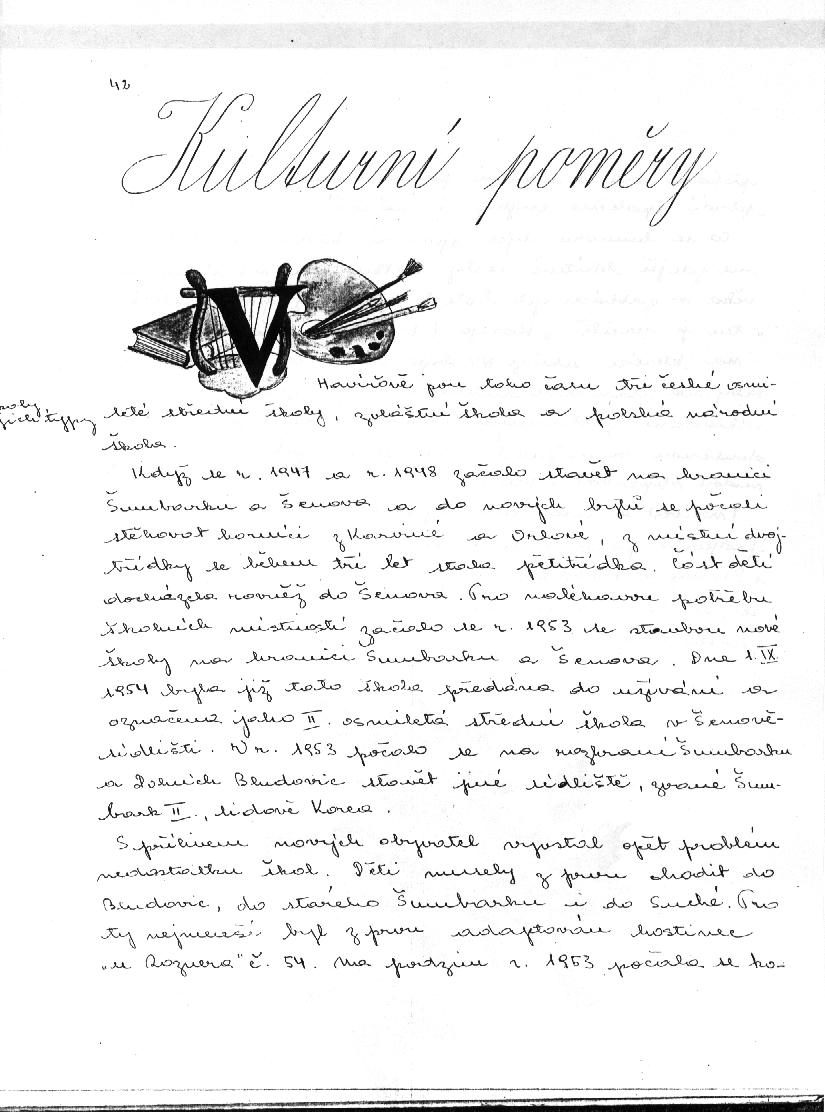 42
Kulturní poměry
V Havířově jsou toho času tři české osmi-
leté střední školy, zvláštní škola a polská národní
škola.
Když se r. 1947 a r. 1948 začalo stavět na hranici
Šumbarku a Šenova a do nových bytů se počali
stěhovat horníci z Karviné a Orlové, z místní dvoj-
třídky se během tří let stala pětitřídka. Část dětí
docházela rovněž do Šenova. Pro naléhavou potřebu
školních místností začalo se r. 1953 se stavbou nové
školy na hranici Šumbarku a Šenova. Dne 1. IX.
1954 byla již tato škola předána do užívání a
označena jako II. osmiletá střední škola v Šenově-
sídlišti. V r. 1953 počalo se na rozhraní Šumbarku
a Dolních Bludovic stavět jiné sídliště, zvané Šum-
bark II., lidově Korea.
S přílivem nových obyvatel vyvstal opět problém
nedostatku škol. Děti musely z prvu chodit do
Bludovic, do starého Šumbarku i do Suché. Pro
ty nejmenší byl z prvu adaptován hostinec
„u Roznera" č. 54. Na podzim r. 1953 počala se ko-